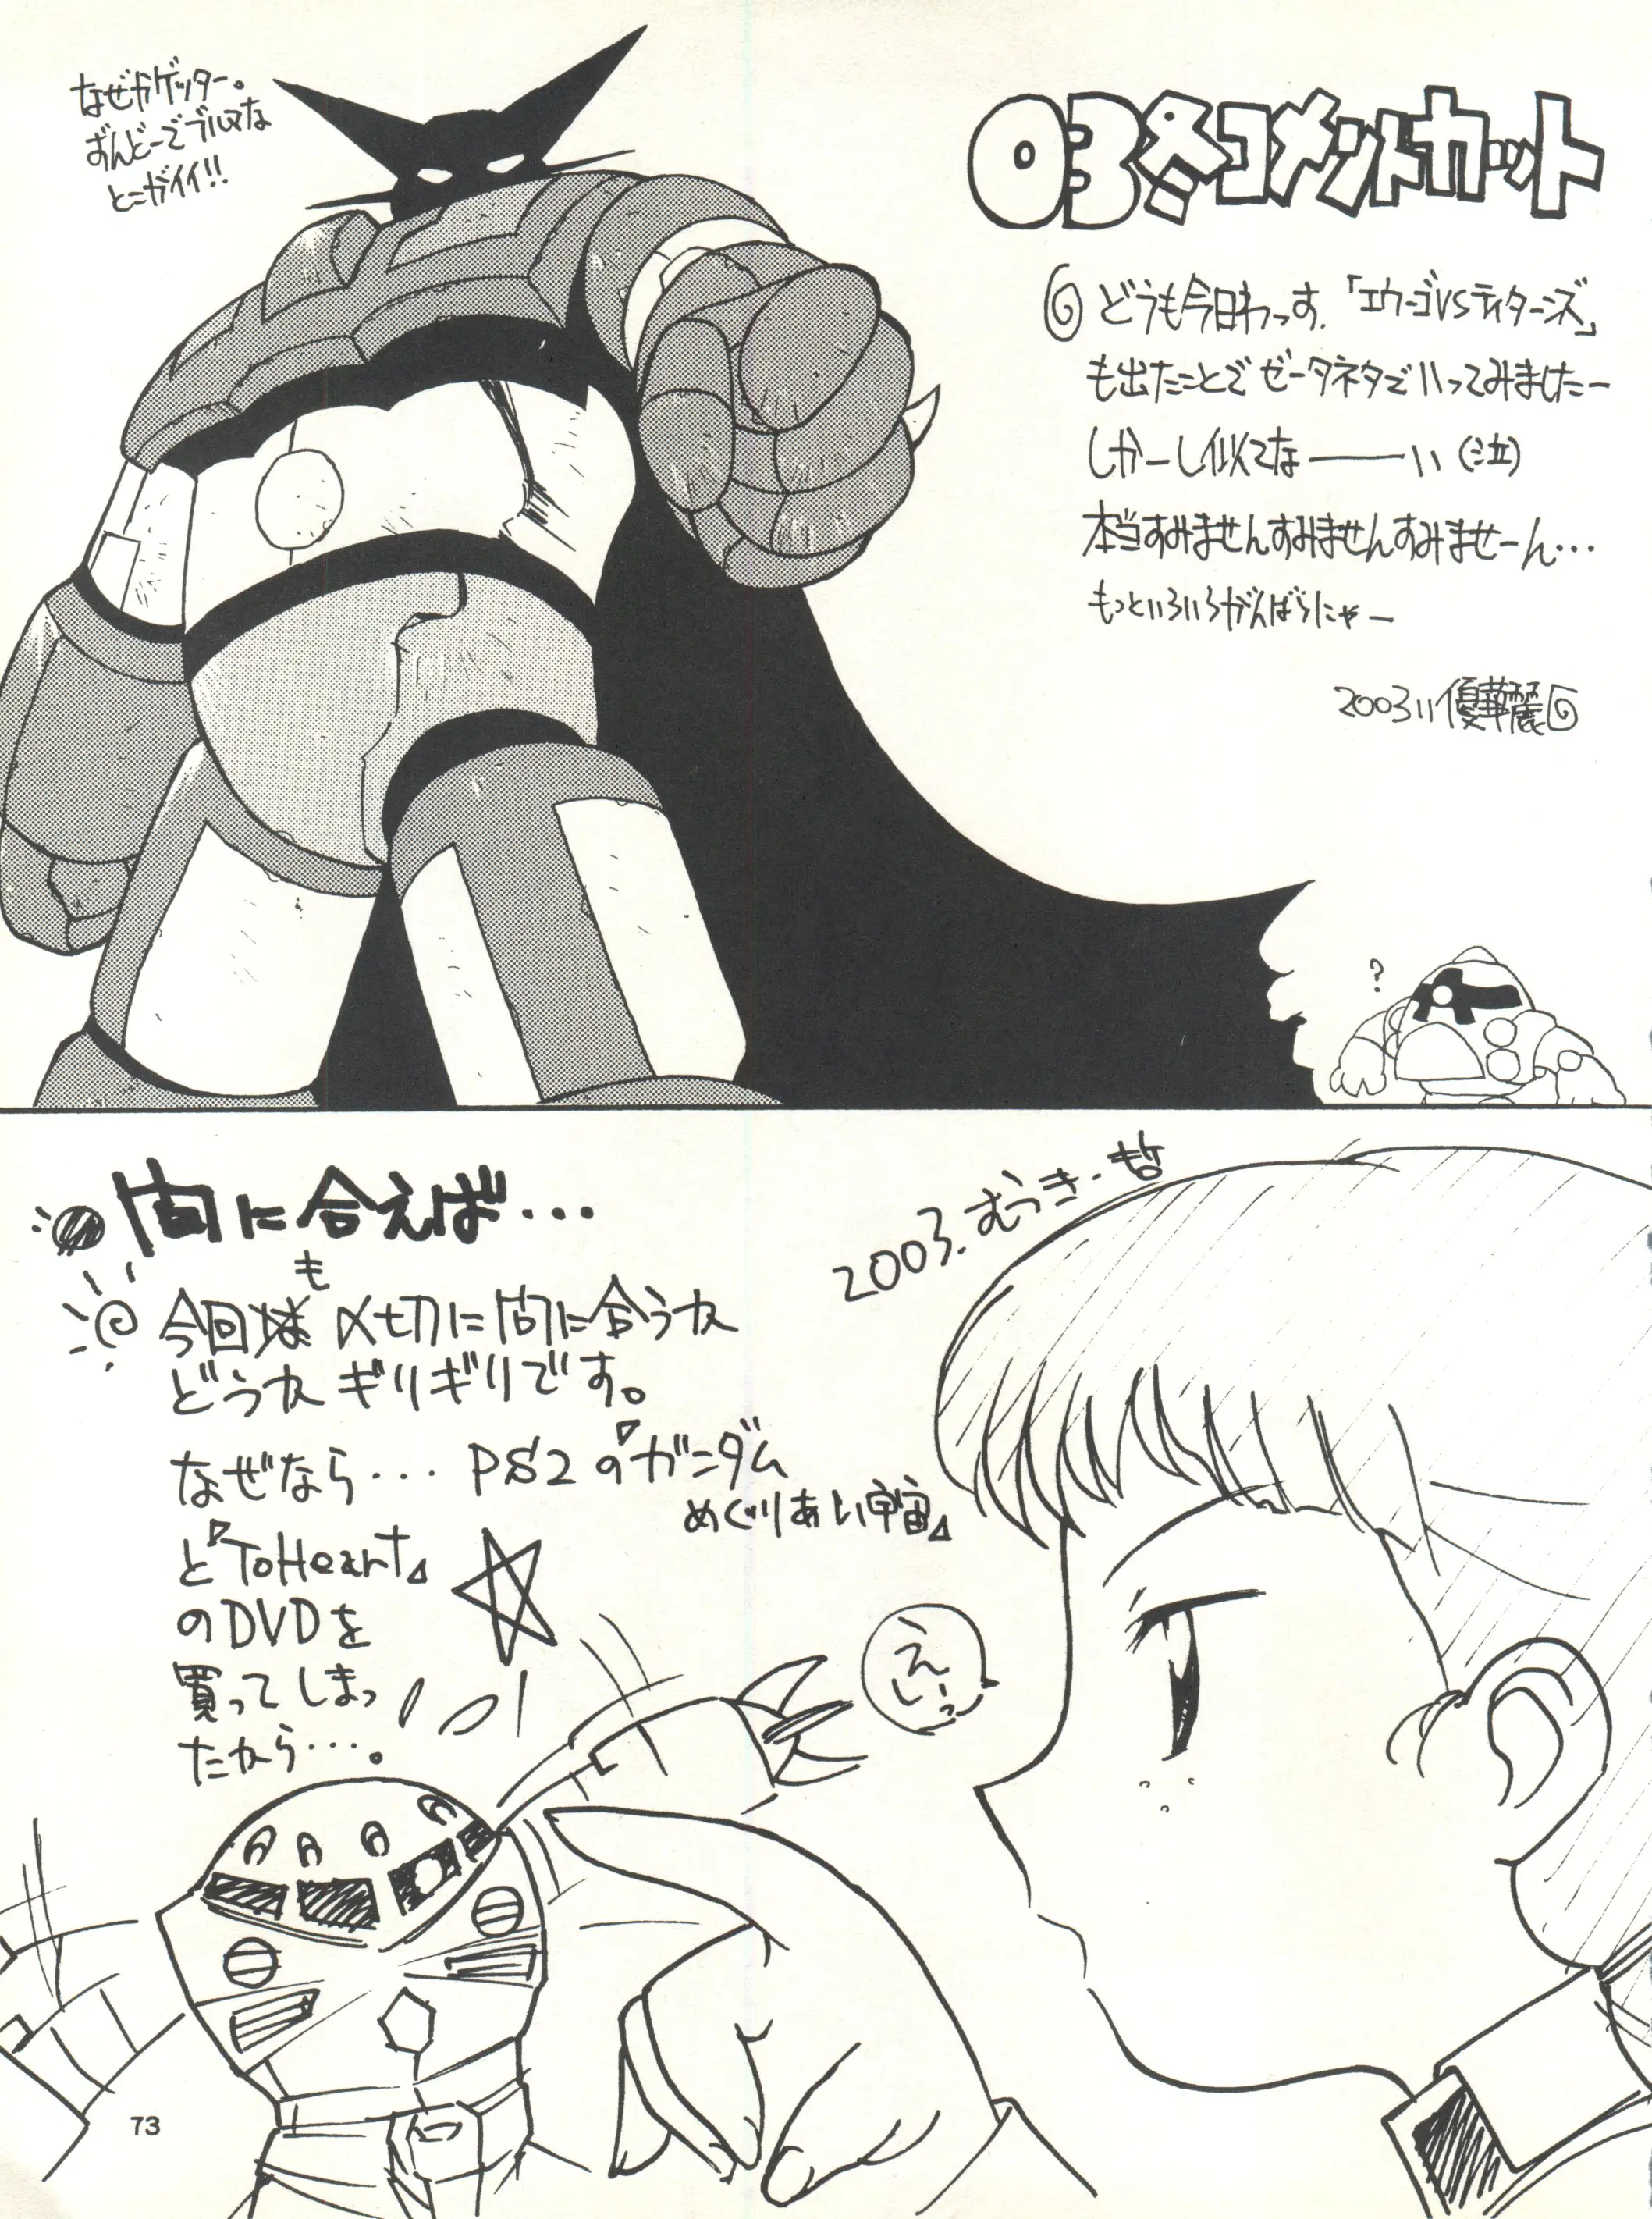 03冬コメントカット
なぜかゲッター。
ずんどーでブルマな
とこがイイ!!
どうも今日わっす.「エウーゴVSティターンズ」
も出たことでゼータネタでいってみましたー
しかーし似てな――い(泣)
本当すみませんすみませんすみませーん…
もっといろいろがんばらにゃー
2003,11優華麗
?
間に合えば…
今回も〆切に間に合うか
どうかギリギリです。
なぜなら… PS2の『ガンダム
めぐりあい宇宙』
と『ToHeart』
のDVDを
買ってしまっ
たから…。
2003.むつき.哲
えーっ
えいっ
73